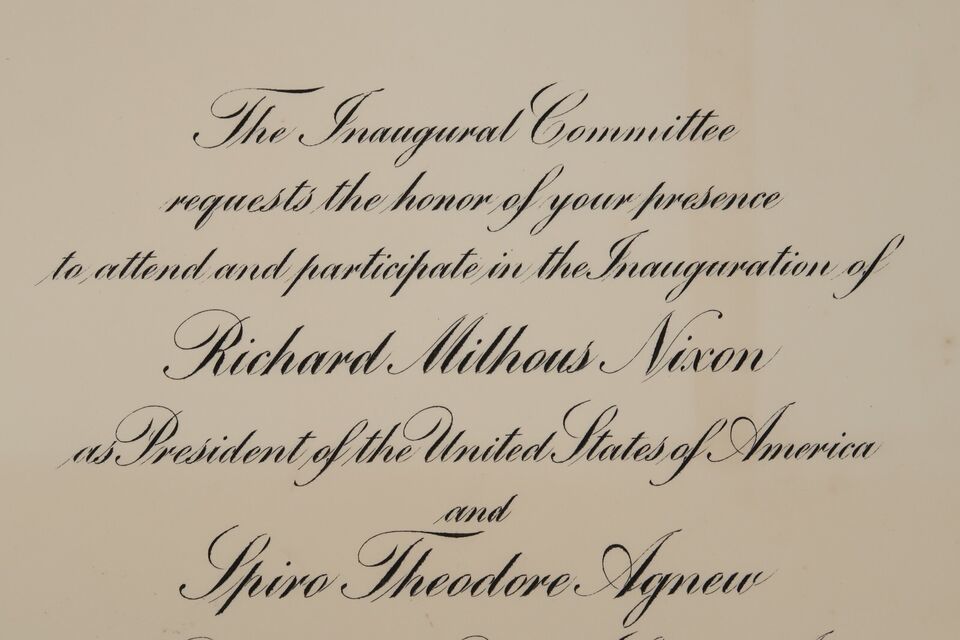 The Inaugural Committee
requests the honor of your presence
to attend and participate in the Inauguration of
Richard Milhous Nixon
as President of the United States of America
and
Spiro Theodore Agnew